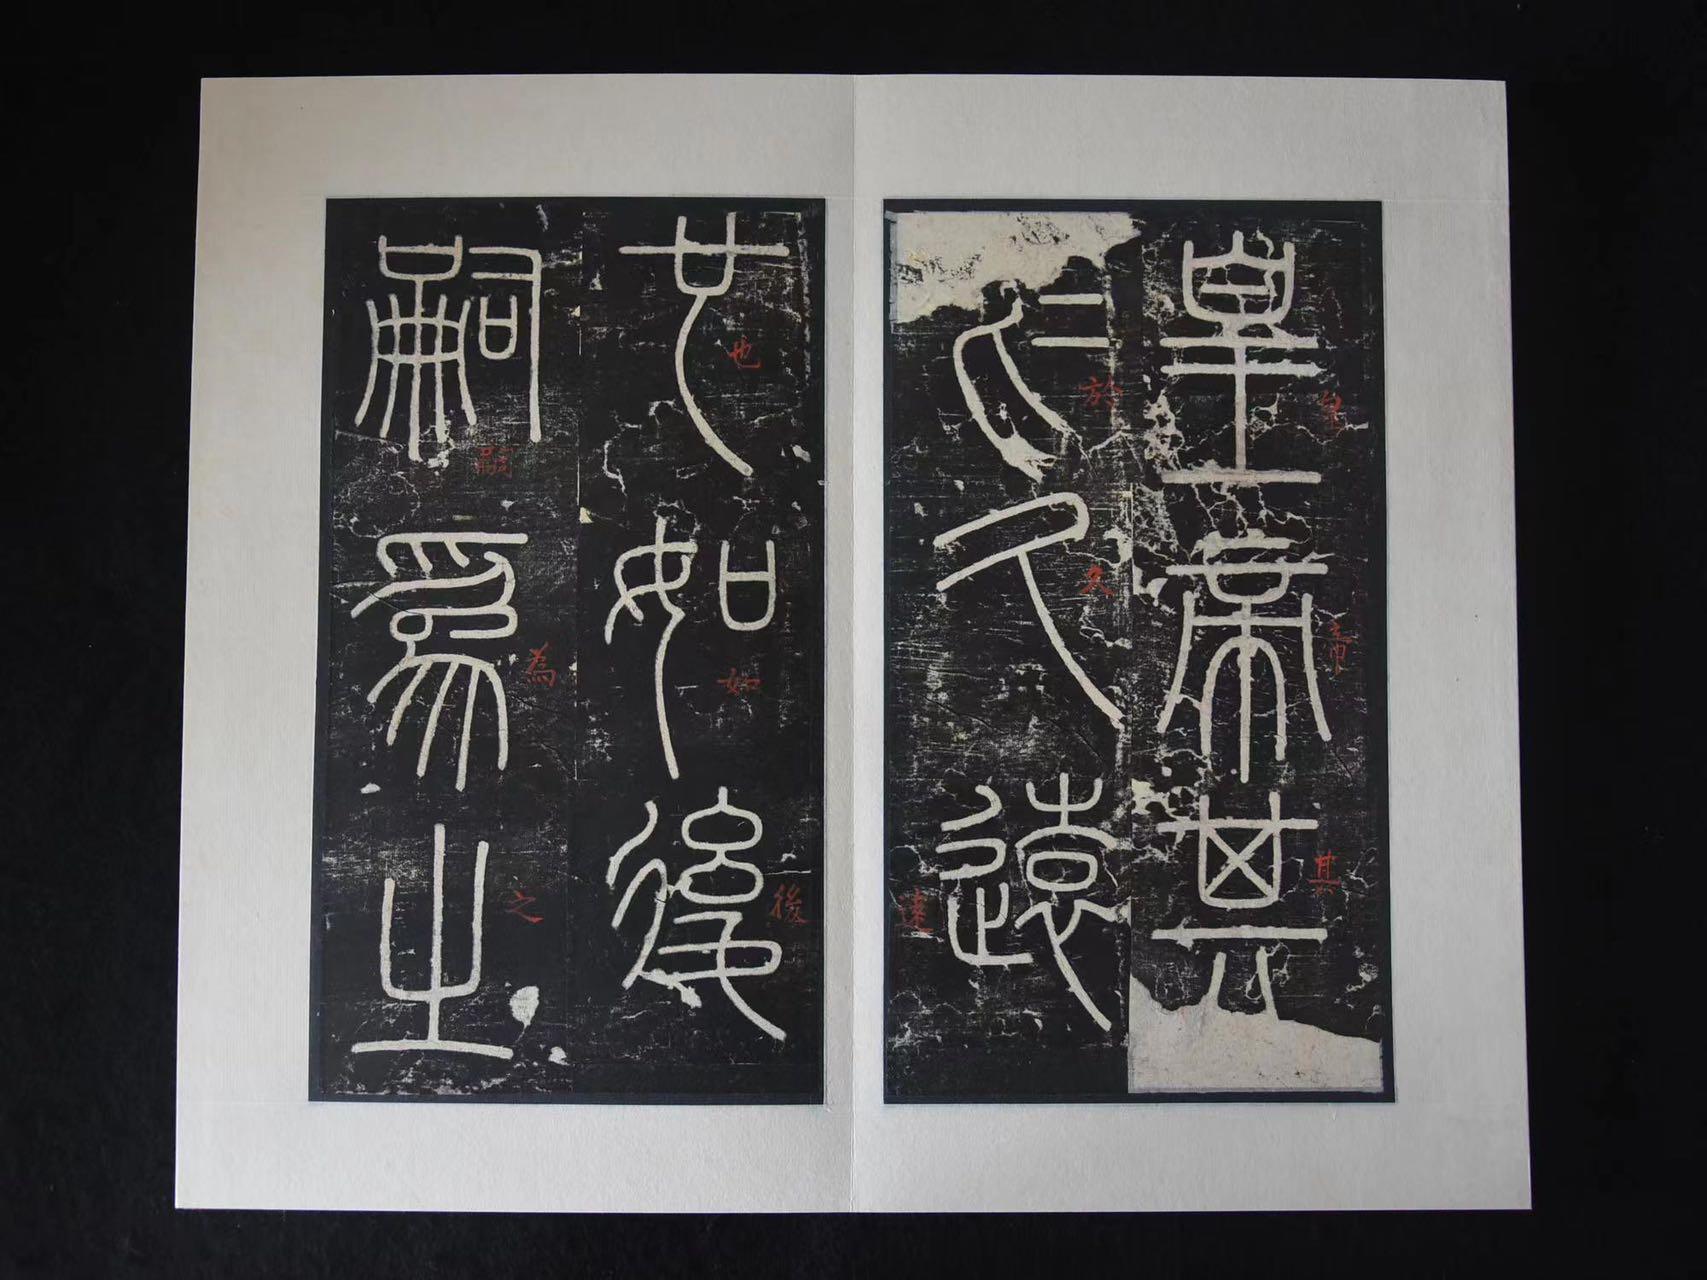 皇帝其
於久遠
也如後
嗣為之